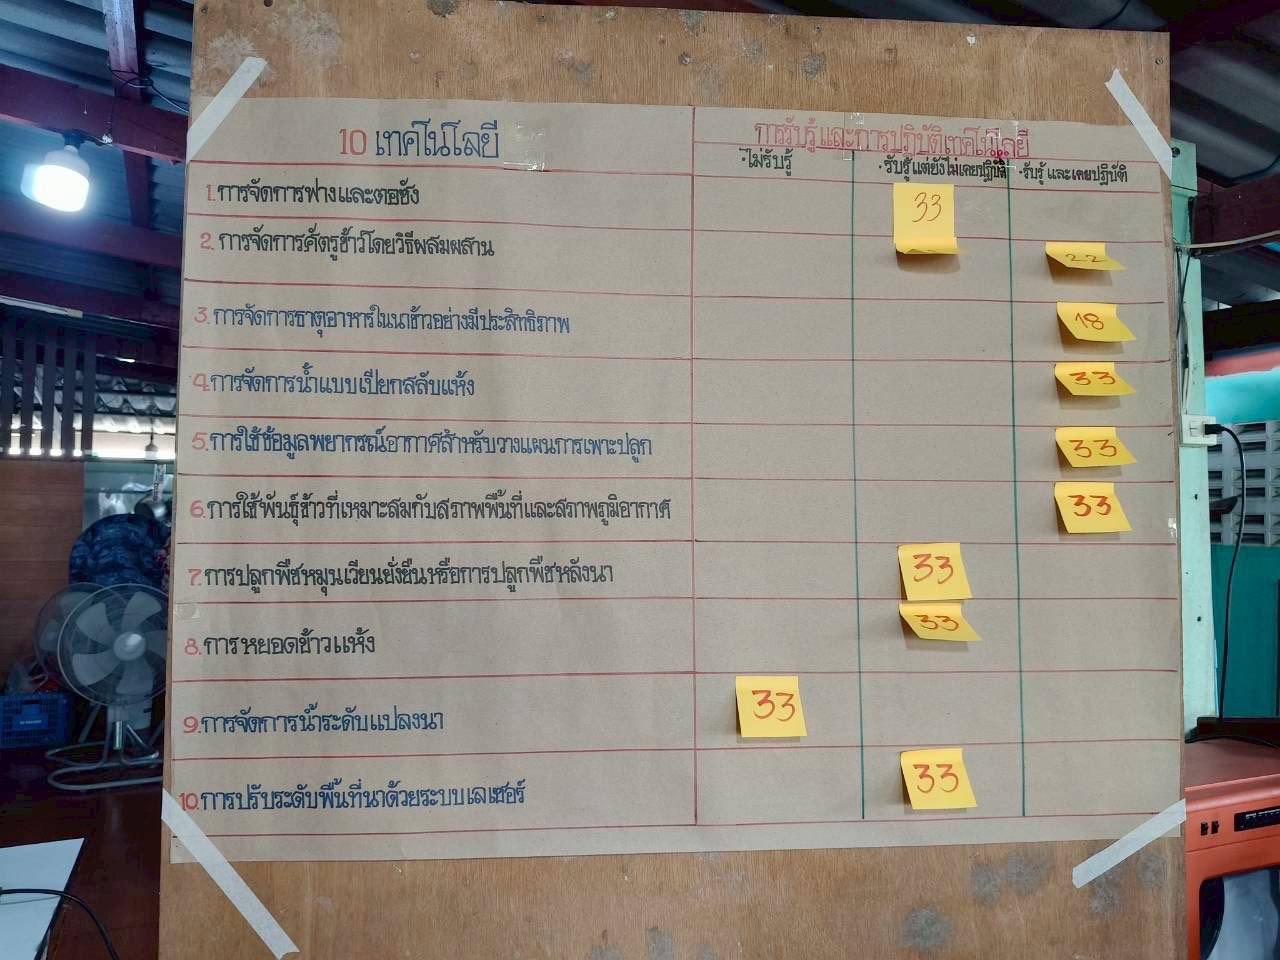 10 เทคโนโลยี
การรับรู้และการปฏิบัติเทคโนโลยี
·ไม่รับรู้ ·รับรู้แต่ยังไม่เคยปฏิบัติ ·รับรู้และเคยปฏิบัติ
1.การจัดการฟางและตอซัง 33
2.การจัดการศัตรูข้าวโดยวิธีผสมผสาน 22
3.การจัดการธาตุอาหารในนาข้าวอย่างมีประสิทธิภาพ 18
4.การจัดการน้ำแบบเปียกสลับแห้ง 33
5.การใช้ข้อมูลพยากรณ์อากาศสำหรับวางแผนการเพาะปลูก 33
6.การใช้พันธุ์ข้าวที่เหมาะสมกับสภาพพื้นที่และสภาพภูมิอากาศ 33
7.การปลูกพืชหมุนเวียนยั่งยืนหรือการปลูกพืชหลังนา 33
8.การหยอดข้าวแห้ง 33
9.การจัดการน้ำระดับแปลงนา 33
10.การปรับระดับพื้นที่นาด้วยระบบเลเซอร์ 33